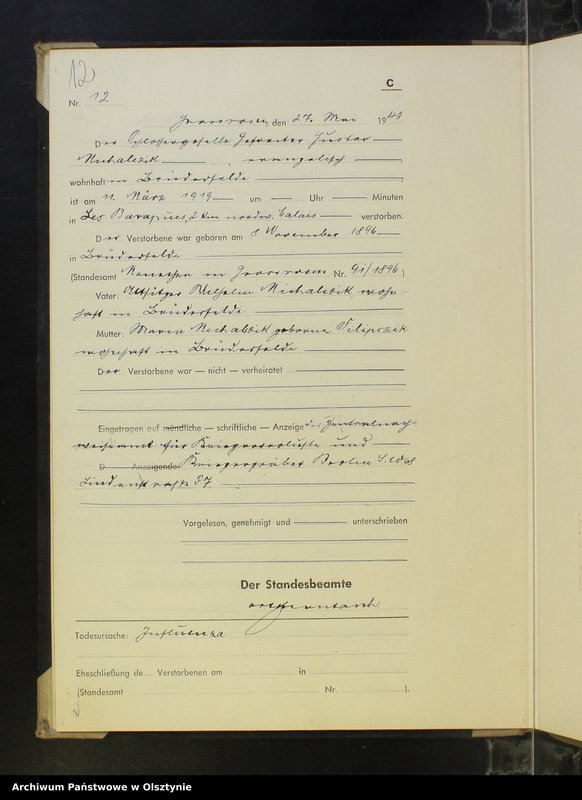 12
C
Nr. 12
Grossrosen, den 27. Mai 1940
Der Schlossergeselle Gefreiter Gustav
Michalzik, evangelisch,
wohnhaft in Brüderfelde
ist am 11. März 1919 um Uhr Minuten
in Les Baraques, 2 km nordw. Calais verstorben.
Der Verstorbene war geboren am 8. November 1896
in Brüderfelde
(Standesamt in Grossrosen Nr. 91/1896)
Vater: Altsitzer Wilhelm Michalzik, wohn-
haft in Brüderfelde
Mutter: Maria Michalzik geborene Filipzik
wohnhaft in Brüderfelde
Der Verstorbene war — nicht — verheiratet
Eingetragen auf mündliche — schriftliche — Anzeige des Zentralnach-
weiseamt für Kriegerverluste und
D Anzeigende Kriegergräber Berlin S.W. 68
Lindenstraße 37.
Vorgelesen, genehmigt und unterschrieben
Der Standesbeamte
Todesursache: Influenza
Eheschließung de Verstorbenen am in
(Standesamt Nr. ).
Archiwum Państwowe w Olsztynie